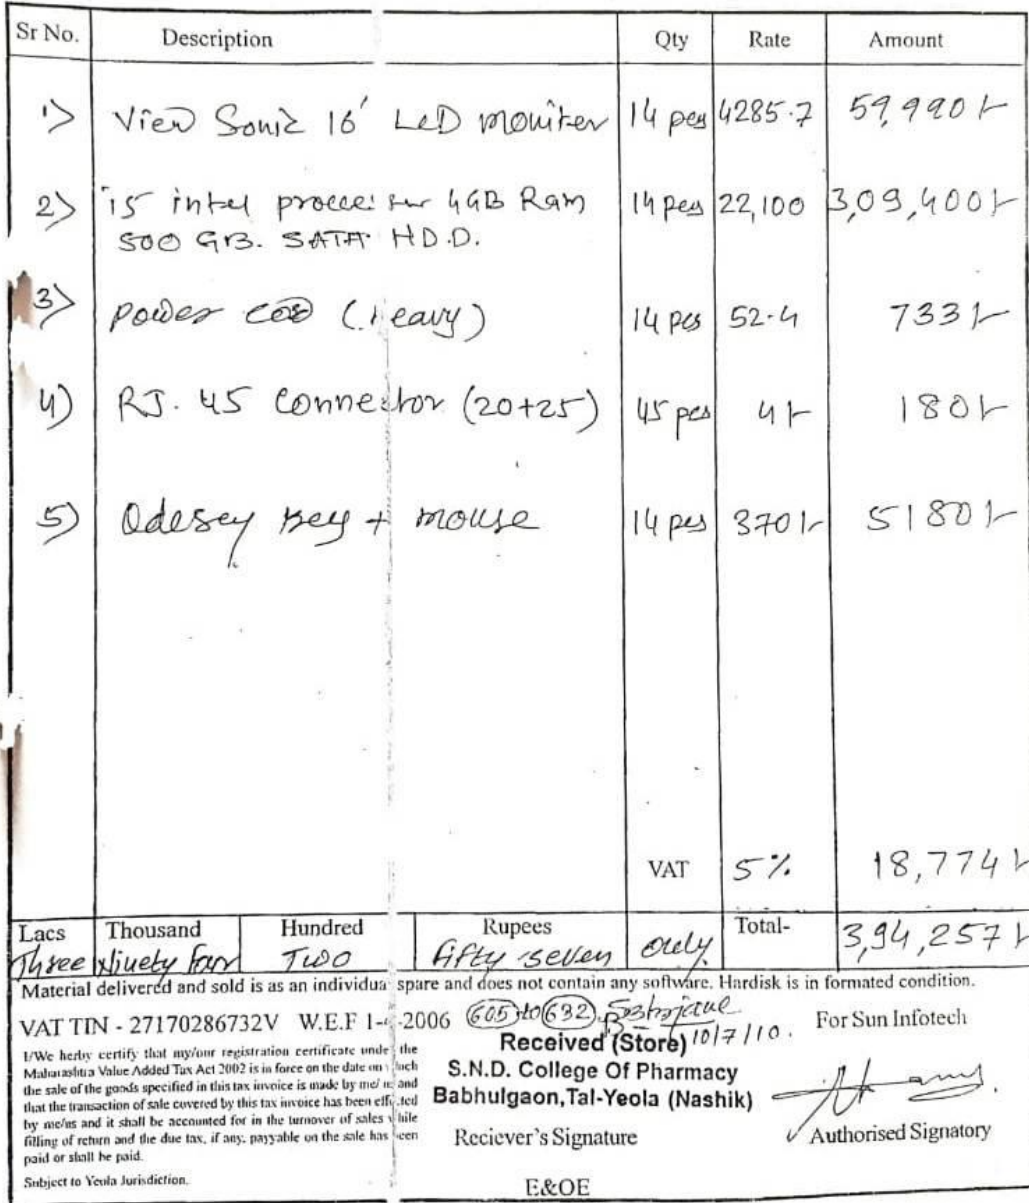 Sr No. Description Qty Rate Amount
1) View Sonic 16' LeD moniter 14 pcs 4285.7 59,990/-
2) i5 intel processor 4GB Ram 14 pcs 22,100 3,09,400/-
500 GB. SATA HD.D.
3) power cod (heavy) 14 pcs 52.4 733/-
4) RJ. 45 connector (20+25) 45 pcs 4/- 180/-
5) Odesey key + mouse 14 pcs 370/- 5180/-
VAT 5% 18,774/-
Lacs Thousand Hundred Rupees Total- 3,94,257/-
Three Ninety four Two fifty seven only.
Material delivered and sold is as an individual spare and does not contain any software. Hardisk is in formated condition.
VAT TIN - 27170286732V W.E.F 1- -2006 605 to 632 10/7/10. For Sun Infotech
I/We herby certify that my/our registration certificate under the
Maharashtra Value Added Tax Act 2002 is in force on the date on which
the sale of the goods specified in this tax invoice is made by me/us and
that the transaction of sale covered by this tax invoice has been effected
by me/us and it shall be accounted for in the turnover of sales while
filling of return and the due tax, if any, payyable on the sale has been
paid or shall be paid.
Subject to Yeola Jurisdiction.
Received (Store)
S.N.D. College Of Pharmacy
Babhulgaon,Tal-Yeola (Nashik)
Reciever's Signature Authorised Signatory
E&OE